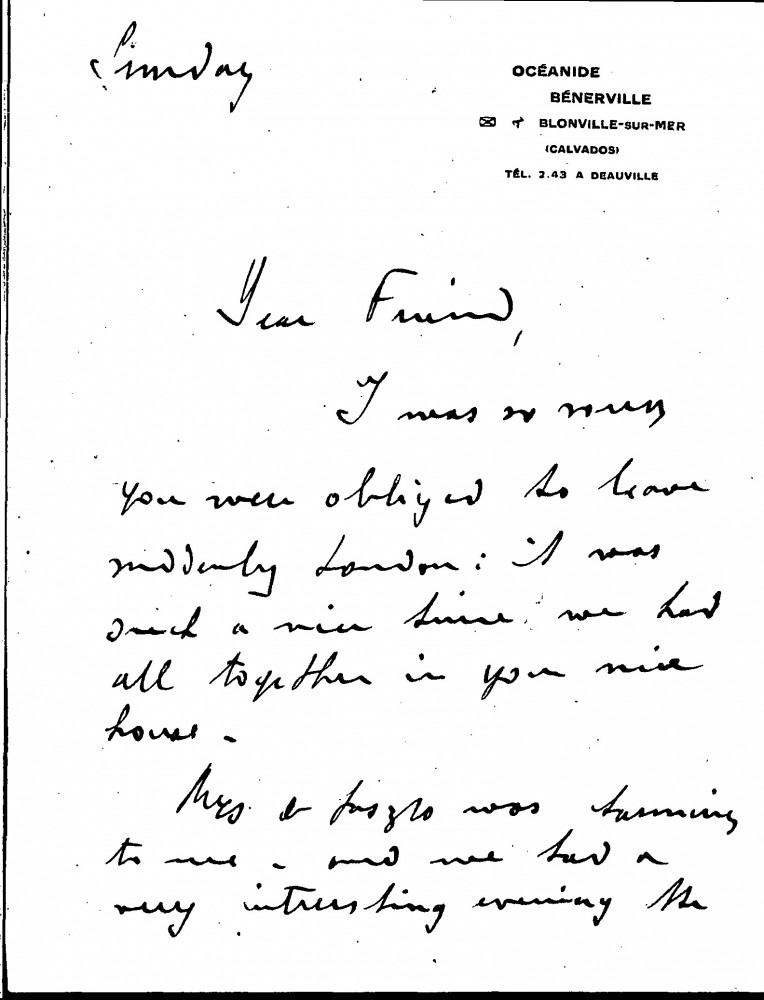 Sunday
OCÉANIDE
BÉNERVILLE
BLONVILLE-SUR-MER
(CALVADOS)
TÉL. 2.43 A DEAUVILLE
Dear Friend,
I was so sorry
you were obliged to leave
suddenly London: it was
such a nice time we had
all together in your nice
house -
Mrs de Laszlo was
to me - and we had a
very intresting evening the